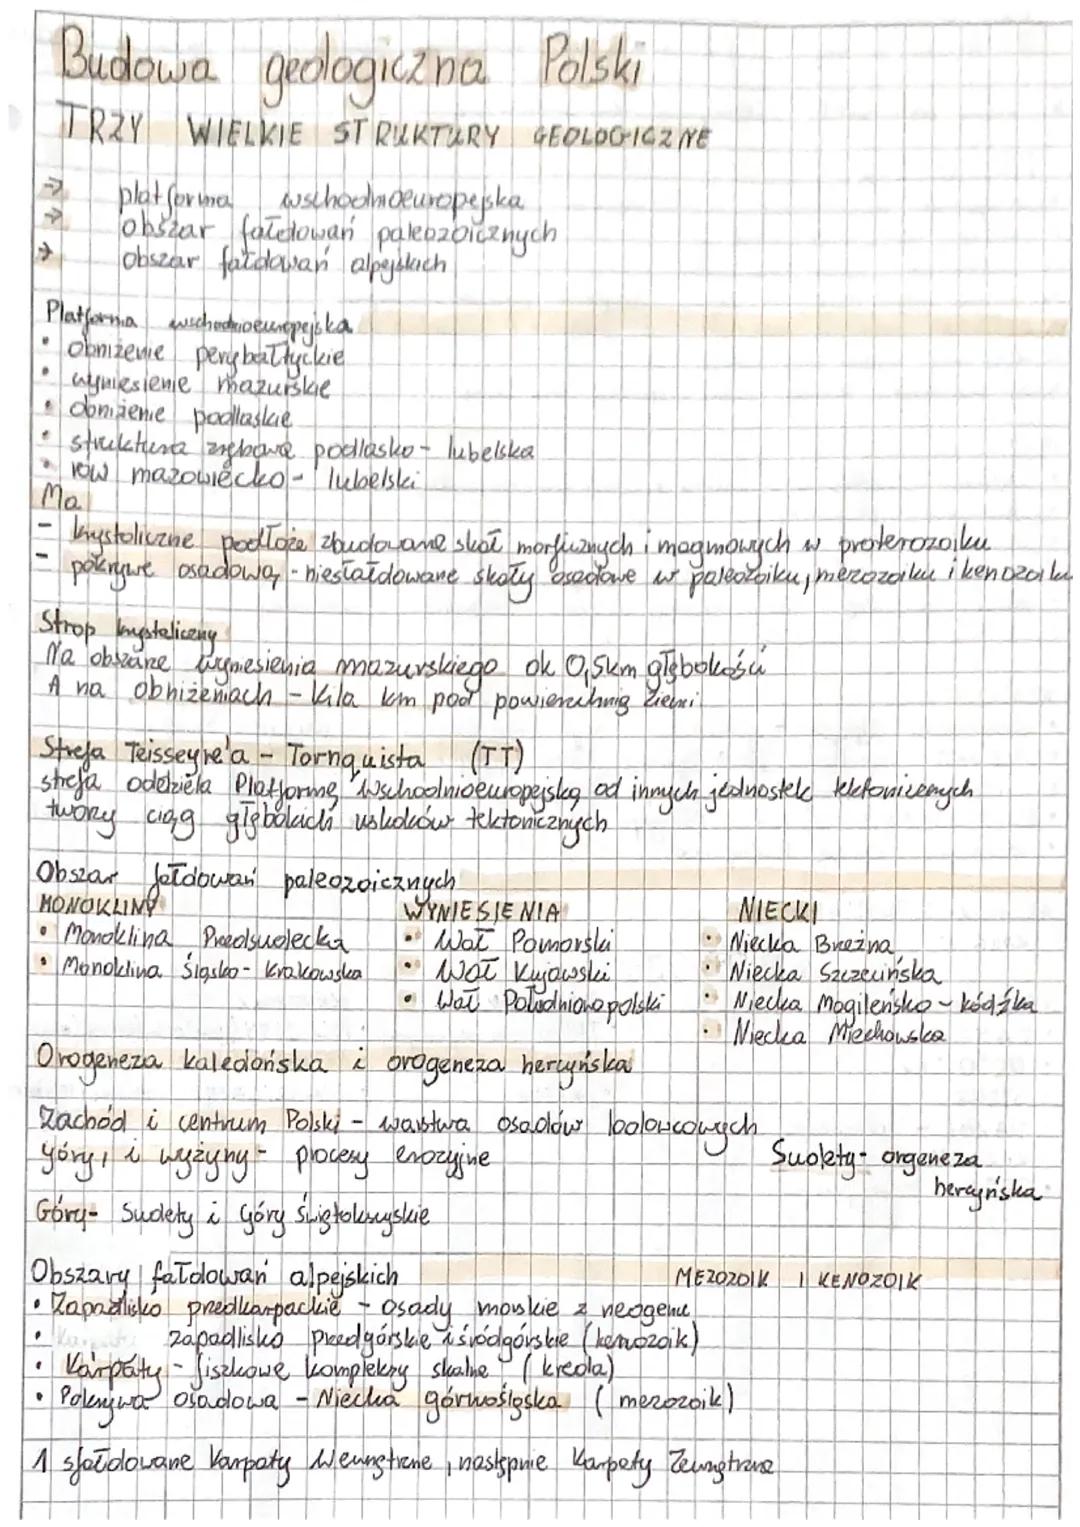 Budowa geologiczna Polski
TRZY WIELKIE STRUKTURY GEOLOGICZNE
→ platforma wschodnioeuropejska
→ obszar fałdowań paleozoicznych
→ obszar fałdowań alpejskich
Platforma wschodnioeuropejska
• obniżenie perybałtyckie
• wyniesienie mazurskie
• obniżenie podlaskie
• struktura zrębowa podlasko - lubelska
• rów mazowiecko - lubelski
Ma
- krystaliczne podłoże zbudowane skał morficznych i magmowych w proterozoiku
- pokrywę osadową - niesfałdowane skały osadowe w paleozoiku, mezozoiku i kenozoiku
Strop krystaliczny
Na obszarze wyniesienia mazurskiego ok 0,5km głębokości
A na obniżeniach - kila km pod powierzchnią ziemi
Strefa Teisseyre'a - Tornquista (TT)
strefa oddziela Platformę Wschodnioeuropejską od innych jednostek tektonicznych
tworzy ciąg głębokich uskoków tektonicznych
Obszar fałdowań paleozoicznych
MONOKLINY WYNIESIENIA NIECKI
• Monoklina Przedsudecka • Wał Pomorski • Niecka Brzeżna
• Monoklina Śląsko - Krakowska • Wał Kujawski • Niecka Szczecińska
• Wał Południowopolski • Niecka Mogileńsko - Łódzka
• Niecka Miechowska
Orogeneza kaledońska i orogeneza hercyńska
Zachód i centrum Polski - warstwa osadów lodowcowych
góry, i wyżyny - procesy erozyjne Sudety - orgeneza
hercyńska
Góry - Sudety i Góry Świętokrzyskie
Obszary fałdowań alpejskich MEZOZOIK I KENOZOIK
• Zapadlisko przedkarpackie - osady morskie z neogenu
• zapadlisko przedgórskie i śródgórskie (kenozoik)
• Karpaty - fliszkowe kompleksy skalne (kreda)
• Pokrywa osadowa - Niecka górnośląska (mezozoik)
1 sfałdowane Karpaty Wewnętrzne, następnie Karpaty Zewnętrzne